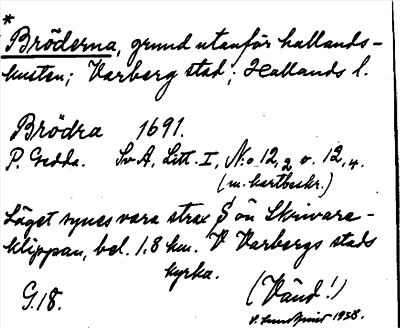 *
Bröderna, grund utanför hallands-
kusten; Varberg stad; Hallands l.
Brödra 1691.
P. Gedda. SvA, Litt. I, No 12,2 o. 12,4.
(m. kartbeskr.)
Läget synes vara strax S ön Skrivare-
klippan, bel. 1,8 km. V Varbergs stads
kyrka.
G.18. (Vänd!)
1938.